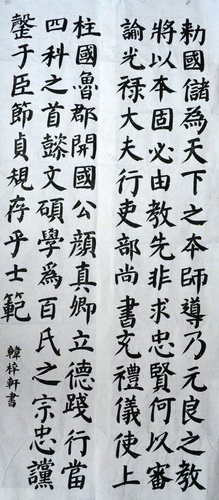 勅國儲為天下之本師導乃元良之教
將以本固必由教先非求忠賢何以審
諭光禄大夫行吏部尚書充禮儀使上
柱國魯郡開國公顏真卿立德踐行當
四科之首懿文碩學爲百氏之宗忠讜
罄于臣節貞規存乎士範
韓梓軒書